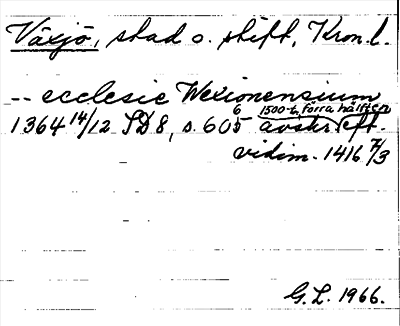 Växjö, stad o. stift, Kron. l.
-- ecclesie Wexionensium
1364 14/12 SD 8, s. 605 6 1500-t., förra hälften avskr. eft.
vidim. 1416 7/3
G.L. 1966.